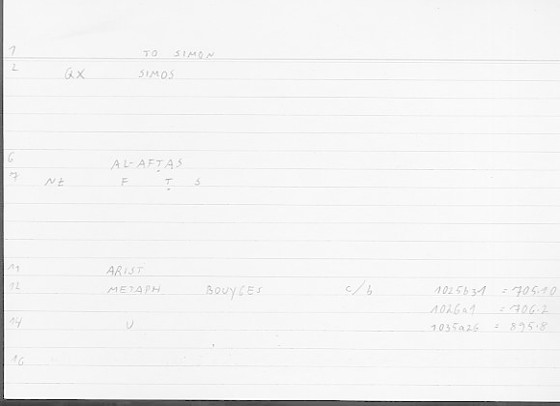 1 TO SIMON
2 QX SIMOS
6 AL-AFṬAS
7 NZ F Ṭ S
11 ARIST
12 METAPH BOUYGES c/b 1025b31 = 705.10
1026a1 = 706.2
14 U 1035a26 = 895.8
16